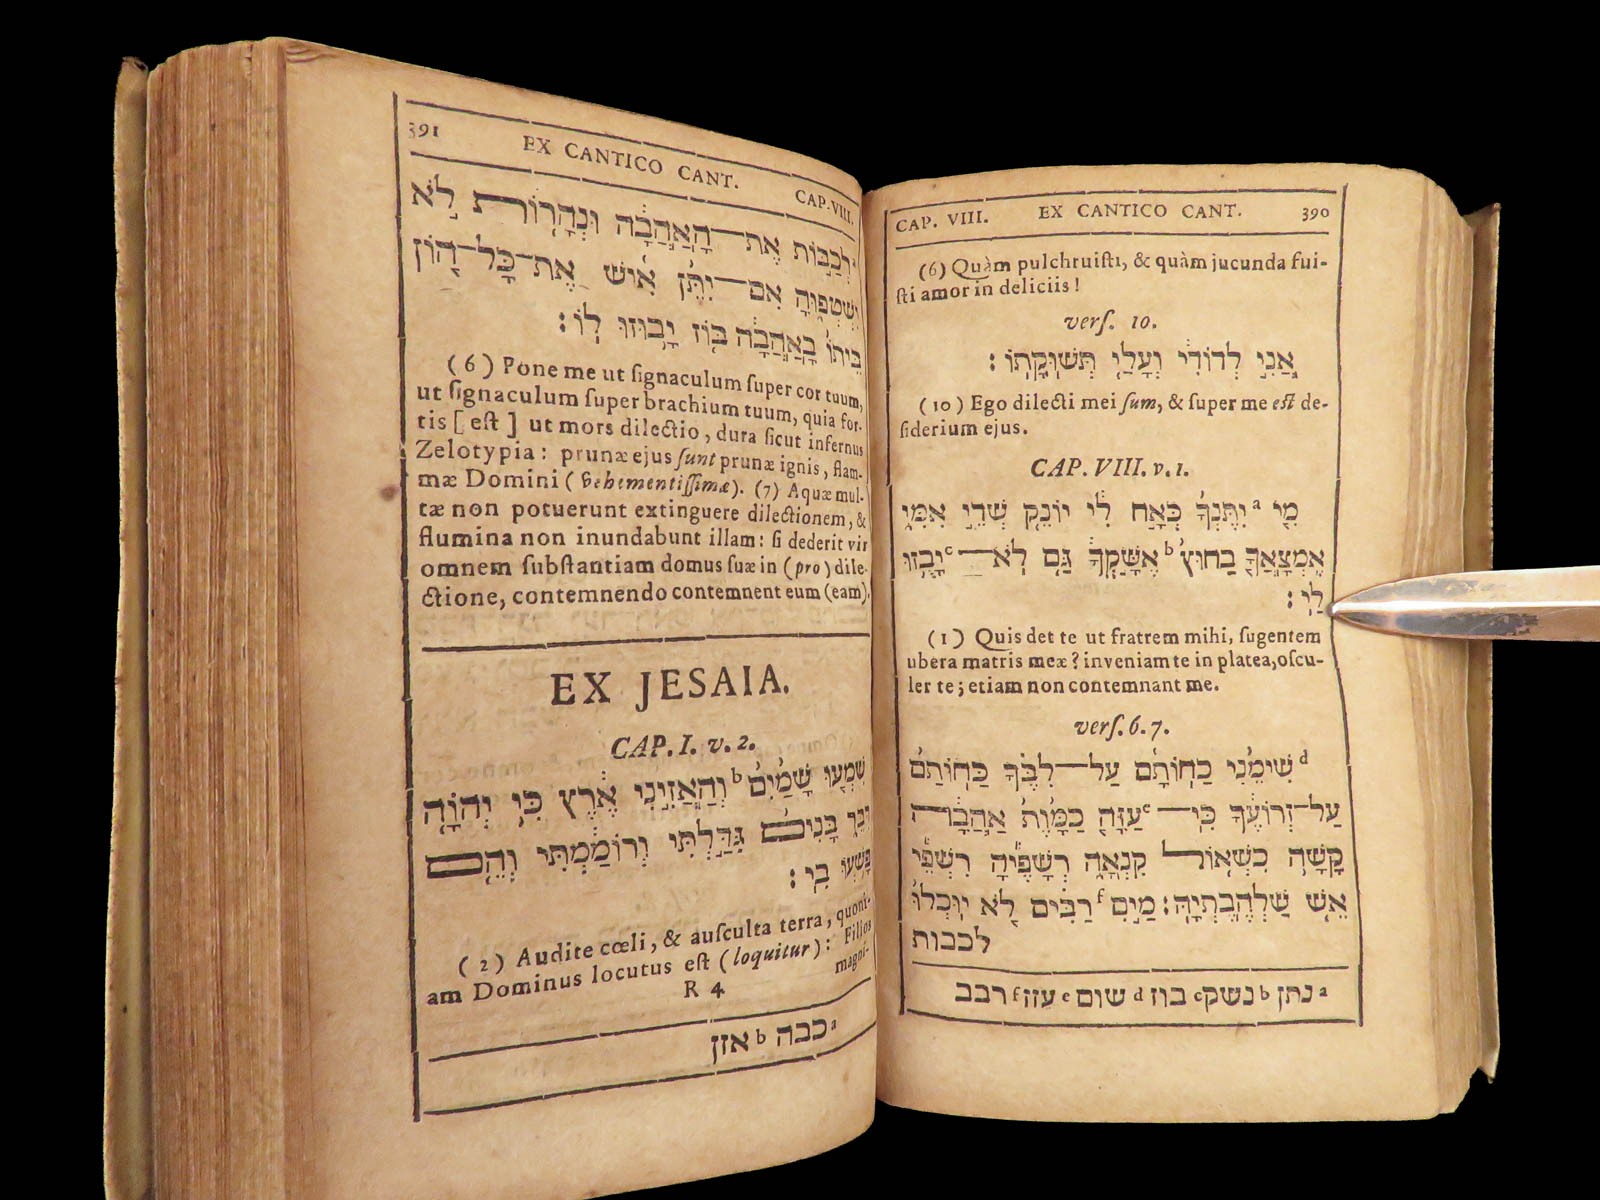 CAP. VIII. EX CANTICO CANT. 390
(6) Quàm pulchruiſti, & quàm jucunda fui-
ſti amor in deliciis!
verſ. 10.
אֲנִי לְדוֹדִי וְעָלַי תְּשׁוּקָתוֹ׃
(10) Ego dilecti mei ſum, & ſuper me eſt de-
ſiderium ejus.
CAP. VIII. v. 1.
מִי a יִתֶּנְךָ כְּאָח לִי יוֹנֵק שְׁדֵי אִמִּי
אֶמְצָאֲךָ בַחוּץ b אֶשָּׁקְךָ גַּם לֹא־ c יָבֻזוּ
לִי׃
(1) Quis det te ut fratrem mihi, ſugentem
ubera matris meæ? inveniam te in platea, oſcu-
ler te; etiam non contemnant me.
verſ. 6. 7.
d שִׂימֵנִי כַחוֹתָם עַל־לִבֶּךָ כַּחוֹתָם
עַל־זְרוֹעֶךָ כִּי־ e עַזָּה כַמָּוֶת אַהֲבָה
קָשָׁה כִשְׁאוֹל קִנְאָה רְשָׁפֶיהָ רִשְׁפֵּי
אֵשׁ שַׁלְהֶבֶתְיָהּ׃ מַיִם f רַבִּים לֹא יוּכְלוּ
לכבות
a נתן b נשק c בוז d שום e עזז f רבב
391 EX CANTICO CANT. CAP. VIII.
a לְכַבּוֹת אֶת־הָאַהֲבָה וּנְהָרוֹת לֹא
יִשְׁטְפוּהָ אִם־יִתֵּן אִישׁ אֶת־כָּל־הוֹן
בֵּיתוֹ בָּאַהֲבָה בּוֹז יָבוּזוּ לוֹ׃
(6) Pone me ut ſignaculum ſuper cor tuum,
ut ſignaculum ſuper brachium tuum, quia for-
tis [eſt] ut mors dilectio, dura ſicut infernus
Zelotypia: prunæ ejus ſunt prunæ ignis, flam-
mæ Domini (vehementiſſimæ). (7) Aquæ mul-
tæ non potuerunt extinguere dilectionem, &
flumina non inundabunt illam: ſi dederit vir
omnem ſubſtantiam domus ſuæ in (pro) dile-
ctione, contemnendo contemnent eum (eam).
EX JESAIA.
CAP. I. v. 2.
שִׁמְעוּ שָׁמַיִם b וְהַאֲזִינִי אֶרֶץ כִּי יְהוָה
דִּבֵּר בָּנִים גִּדַּלְתִּי וְרוֹמַמְתִּי וְהֵם
פָּשְׁעוּ בִי׃
(2) Audite cœli, & auſculta terra, quoni-
am Dominus locutus eſt (loquitur): Filios
R 4 magni-
a כבה b אזן